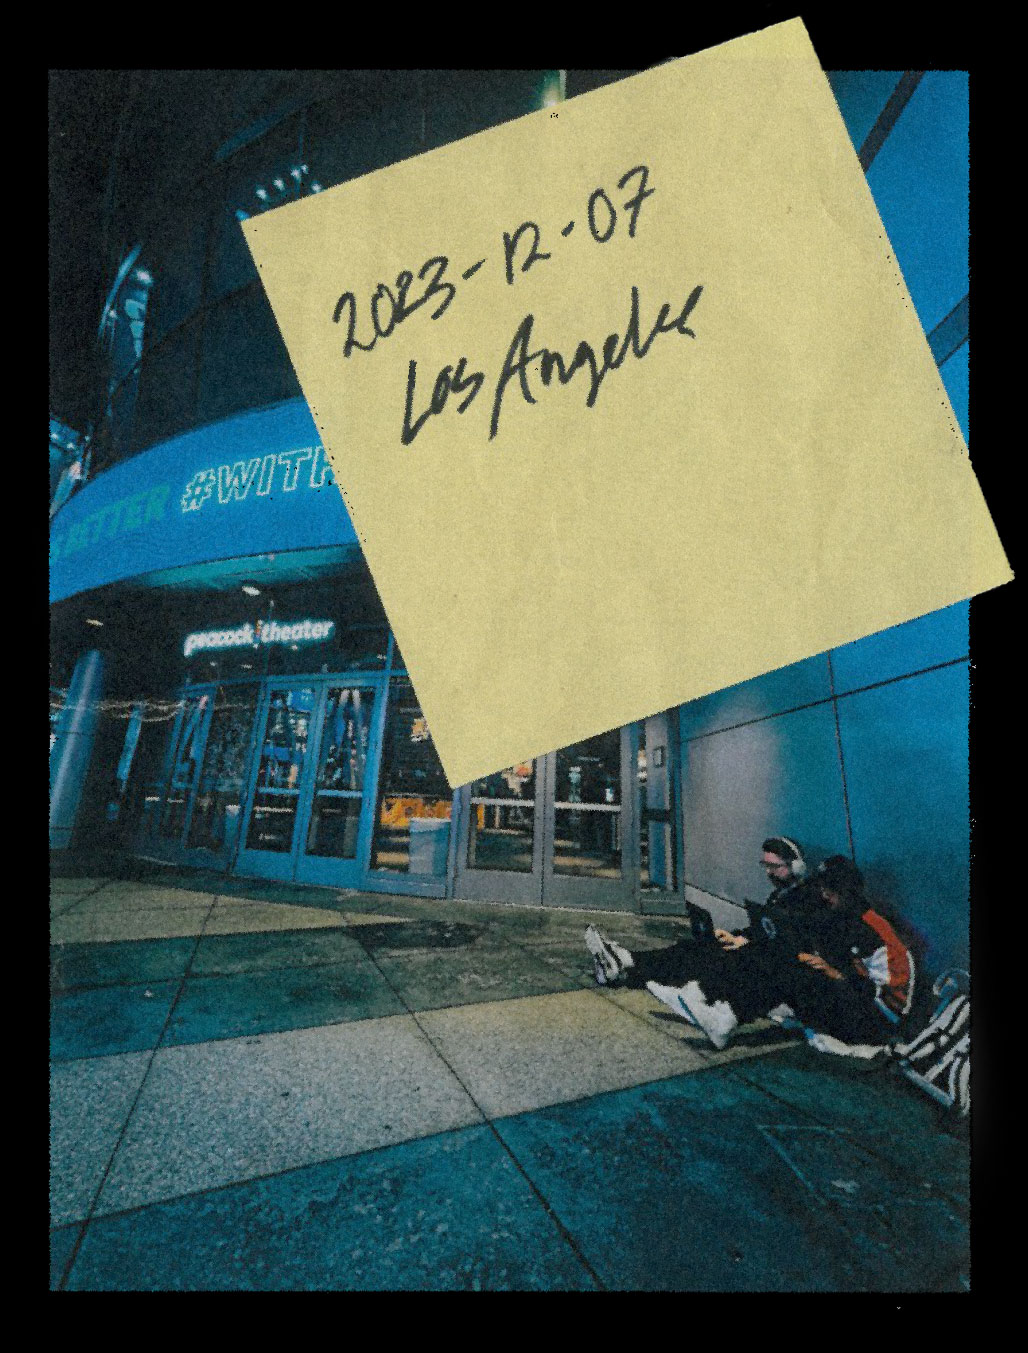 2023-12-07
Los Angeles
BETTER #WITH
peacock theater